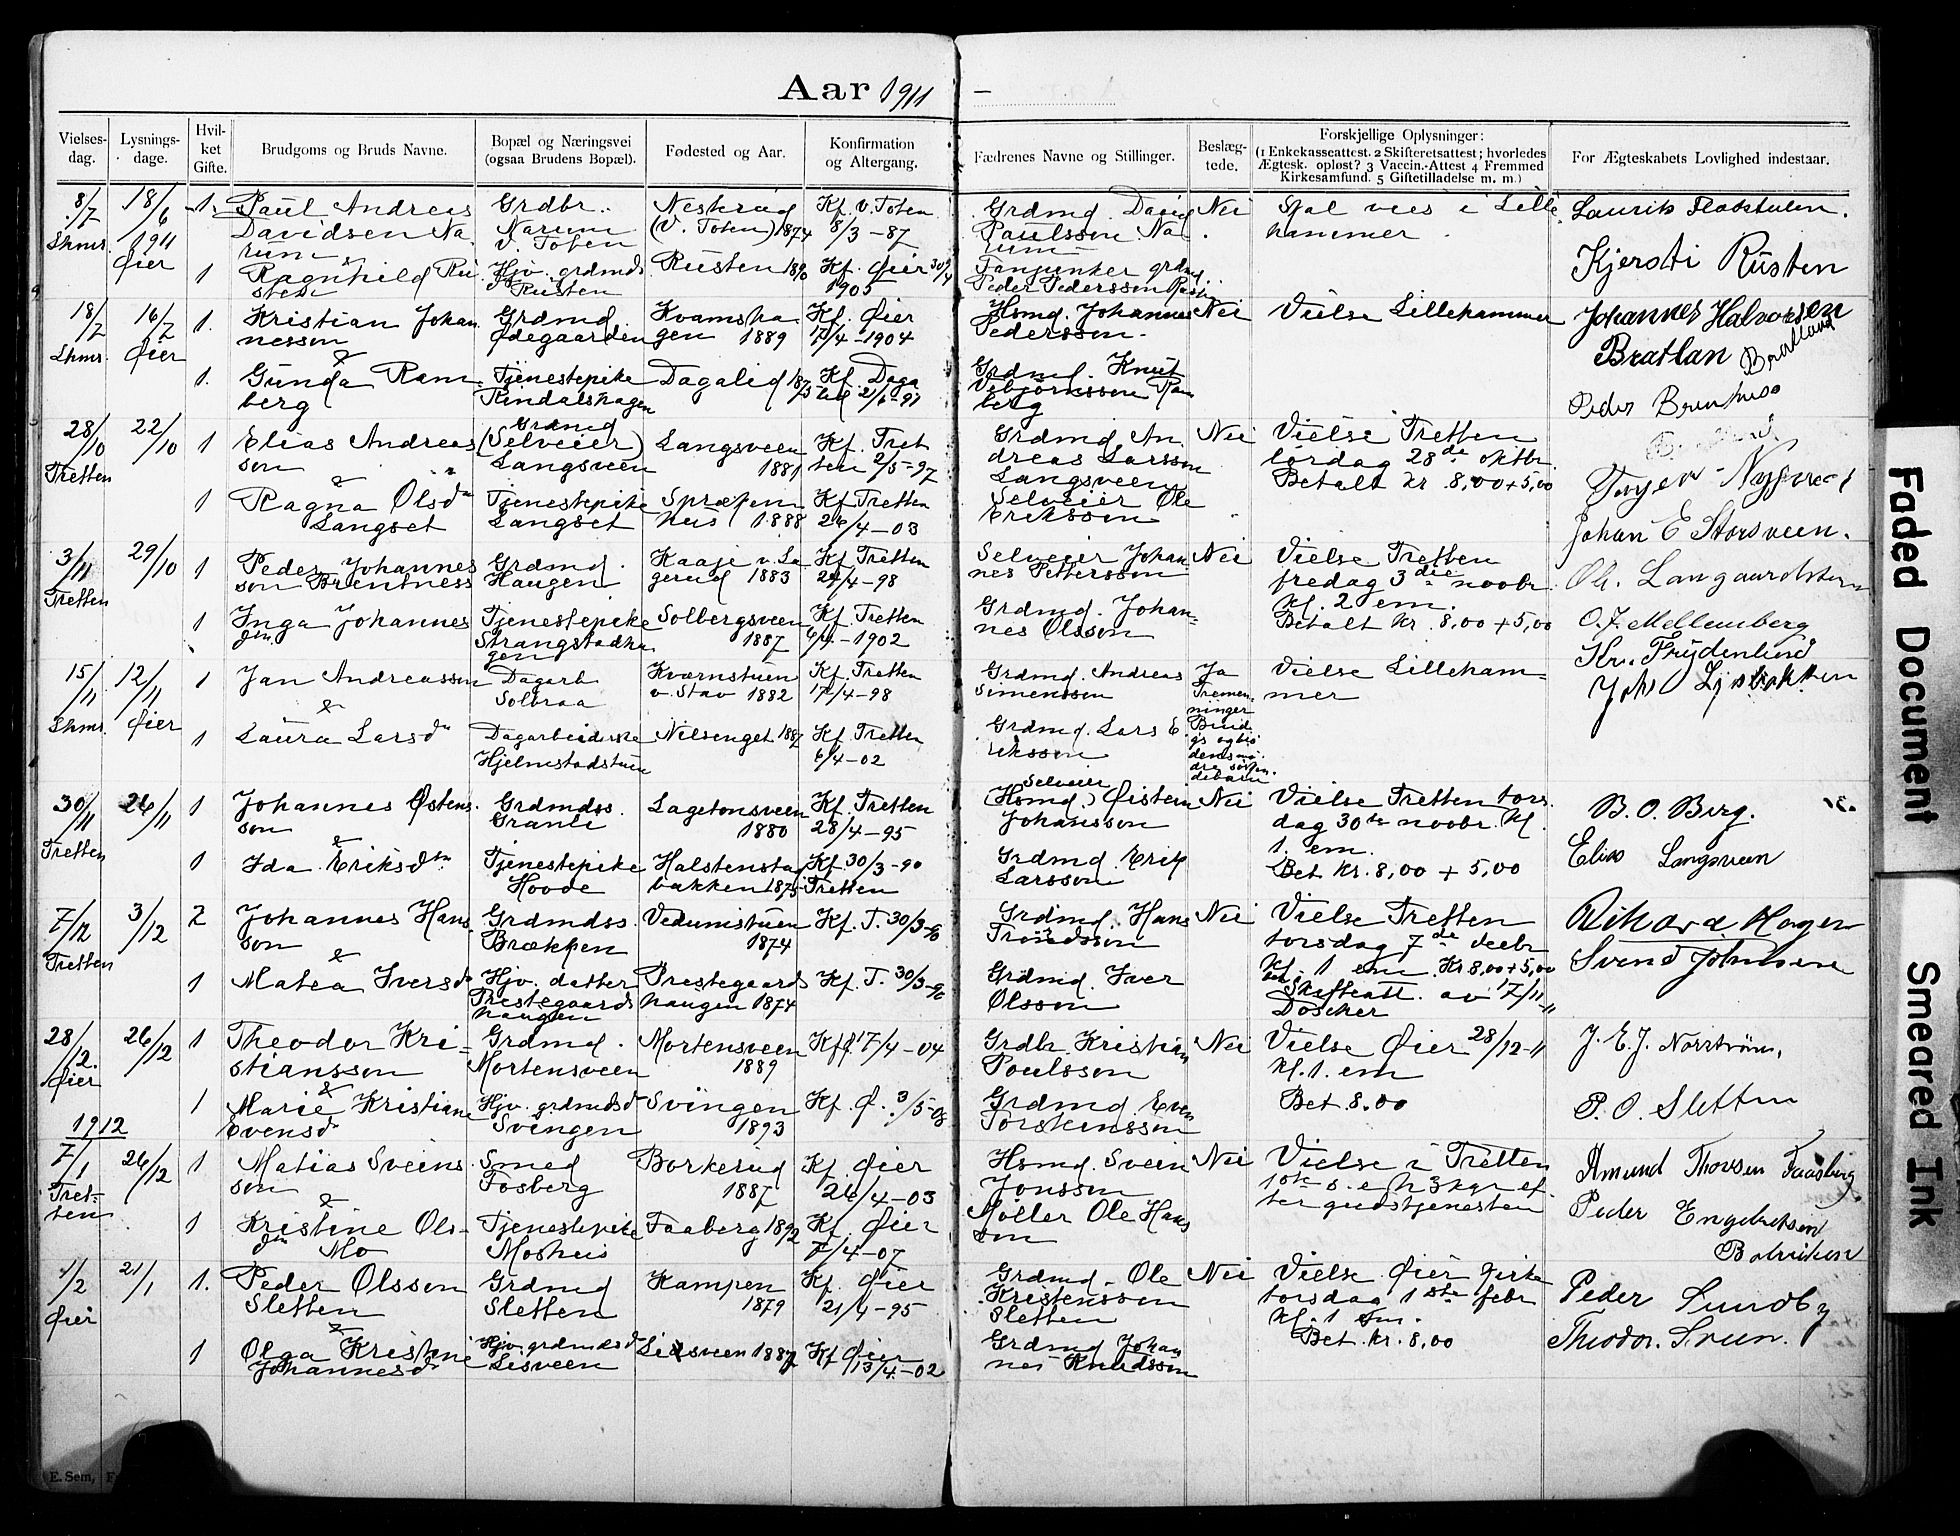 Aar 1911 –
Vielses-
dag.
Lysnings-
dage.
Hvil-
ket
Gifte.
Brudgoms og Bruds Navne.
Bopæl og Næringsvei
(ogsaa Brudens Bopæl).
Fødested og Aar.
Konfirmation
og Altergang.
Fædrenes Navne og Stillinger.
Beslæg-
tede.
Forskjellige Oplysninger:
(1 Enkekasseattest. 2 Skifteretsattest; hvorledes
Ægtesk. opløst? 3 Vaccin.-Attest 4 Fremmed
Kirkesamfund. 5 Giftetilladelse m. m.)
For Ægteskabets Lovlighed indestaar.
8/7
Lhmr.
18/6
1911
Øier
1.
Paul Andreas
Davidsen Na
rum &
Grdbr.
Narum
V. Toten
Neskrud
(V. Toten) 1874
Kf. V. Toten
8/3 - 87
Grdmd. David
Paulsson Na
rum
Nei
Skal vies i Lille
hammer.
1
Ragnhild Ru
sten
Hjv. grdmds
Rusten
Rusten 1890
Kf. Øier 30/4
1905
Fanjunker grdmd
Peder Pedersson Rusten
Kjersti Rusten
18/7
Lhmr.
16/7
Øier
1.
Kristian Johan
nesson
&
Grdmd
Ødegaarden
Kvamsha
gen 1889
Kf. Øier
17/4 - 1904
Hsmd. Johannes
Pedersson.
Nei
Vielse Lillehammer
Johannes Halvorsen
Bratlan Bratland
1.
Gunda Ram
berg
Tjenestepike
Rindalshagen
Dagalid 1875
Kf. Daga
lid 21/6 - 91
Grdmd. Knut
Vebjörnsson Ram
berg
28/10
Tretten
22/10
1
Elias Andreas
son
&
Grdmd
(Selveier)
Langsveen
Langsveen
1881
Kf. Tret
ten 2/5 - 97
Grdmd An
dreas Larsson
Langsveen
Nei
Vielse Tretten
lördag 28de oktbr.
Betalt kr. 8,00 + 5,00
1
Ragna Olsd.
Langset
Tjenestepike
Langset
Spræken
hus 1888
Kf. Tretten
26/4 - 03
Selveier Ole
Eriksson
Johan E Storsveen.
3/11
Tretten
29/10
1
Peder Johannes
son Brentness
Grdmd.
Haugen
Kaaje v. La
gerud 1883
Kf. Tretten
24/4 - 98
Selveier Johan
nes Pettersson
Nei
Vielse Tretten
fredag 3die novbr.
kl. 2 em.
Betalt kr. 8,00 + 5,00
1
Inga Johannes
dtn
Tjenestepike
Strangstadha
gen
Solbergsveen
1887
Kf. Tretten
6/4 - 1902
Grdmd. Johan-
nes Olsson
O. J. Mellemberg
15/11
Lhmr.
12/11
Øier
1
Jan Andreasson
&
Dagarb
Solbraa
Kværnstuen
v. Stav 1882
Kf. Tretten
17/4 - 98
Grdmd. Andreas
Simensson
Ja
Tremen-
ninger
Vielse Lilleham-
mer
Kr. Frydenlund
1
Laura Larsd
Dagarbeiderske
Hjelmstadstuen
Nilsenget 1887
Kf. Tretten
6/4 - 02
Grdmd. Lars E
riksson
30/11
Tretten
26/11
1
Johannes Østens
son
&
Grdmdss.
Granli
Lagetonsveen
1880
Kf. Tretten
28/4 - 95
Selveier
(Hsmd.) Øistein
Johansson
Nei
Vielse Tretten tors
dag 30te novbr. kl.
1. em.
Bet kr. 8,00 + 5,00
B. O. Berg.
1
Ida Eriksdtn
Tjenestepike
Hoode
Halstenstad
bakken 1875
Kf. 30/3 - 90
Tretten
Grdmd. Erik
Larsson
Elias Langsveen
7/12
Tretten
3/12
2
Johannes Hans
son
&
Grdmdss.
Brækken
Vedumstuen
1874
Kf. T. 30/3 - 90
Grdmd. Hans
Trondsson
Nei
Vielse Tretten
torsdag 7de decbr
kl. 1 em. Kr 8,00 + 5,00
Skifteatt. av 17/11 - 11
Rikard Hagen
Svend Johnsen
1
Matea Iversd
Hjv. datter
Prestegaards
haugen
Prestegaards
haugen 1874
Kf. T. 30/3 - 90
Grdmd. Iver
Olsson
28/12.
Øier
26/12
1
Theodor Kri-
stiansson
&
Grdmd.
Mortensveen
Mortensveen
1889
Kf. Ø 17/4 - 04
Grdbr. Kristian
Poulsson
Nei
Vielse Øier 28/12 - 11
kl. 1. em
Bet. 8.00
J. E. J. Norrström.
1
Marie Kristiane
Evensd
Hjv. grdmdsd
Svingen
Svingen
1893
Kf. Ø. 3/5 - 08
Grdmd. Even
Torstensson
P. O. Sletten
1912
7/1
Tret-
ten
26/12
1
Matias Sveins
son
&
Smed
Fosberg
Borkerud
1887
Kf. Øier
26/4 - 03
Hsmd. Svein
Jonsson
Nei
Vielse i Tretten
1ste s. e. h 3 kgr ef-
ter gudstjenesten
Amund Thorsen Faaberg
1
Kristine Ols-
dtn Mo
Tjenestepike
Moshus
Faaberg 1892
Kf. Øier
7/4 - 07
Möller Ole Hans
son
Peder Engebretsen
1/2
Øier
21/1
1.
Peder Olsson
Sletten
&
Grdmd
Sletten
Kampen
1879
Kf. Øier
21/4 - 95
Grdmd. Ole
Kristensson
Sletten
Nei
Vielse Øier kirke
torsdag 1ste febr
kl. 1 em.
Bet. kr. 8,00
Peder Sundby
1
Olga Kristine
Johannesd
Hjv. grdmdsd
Lisveen
Lisveen 1887
Kf Øier
13/4 - 02
Grdmd Johan
nes Knudsson
Theodor. Svun.
E. Sem,
Faded Document
Smeared Ink